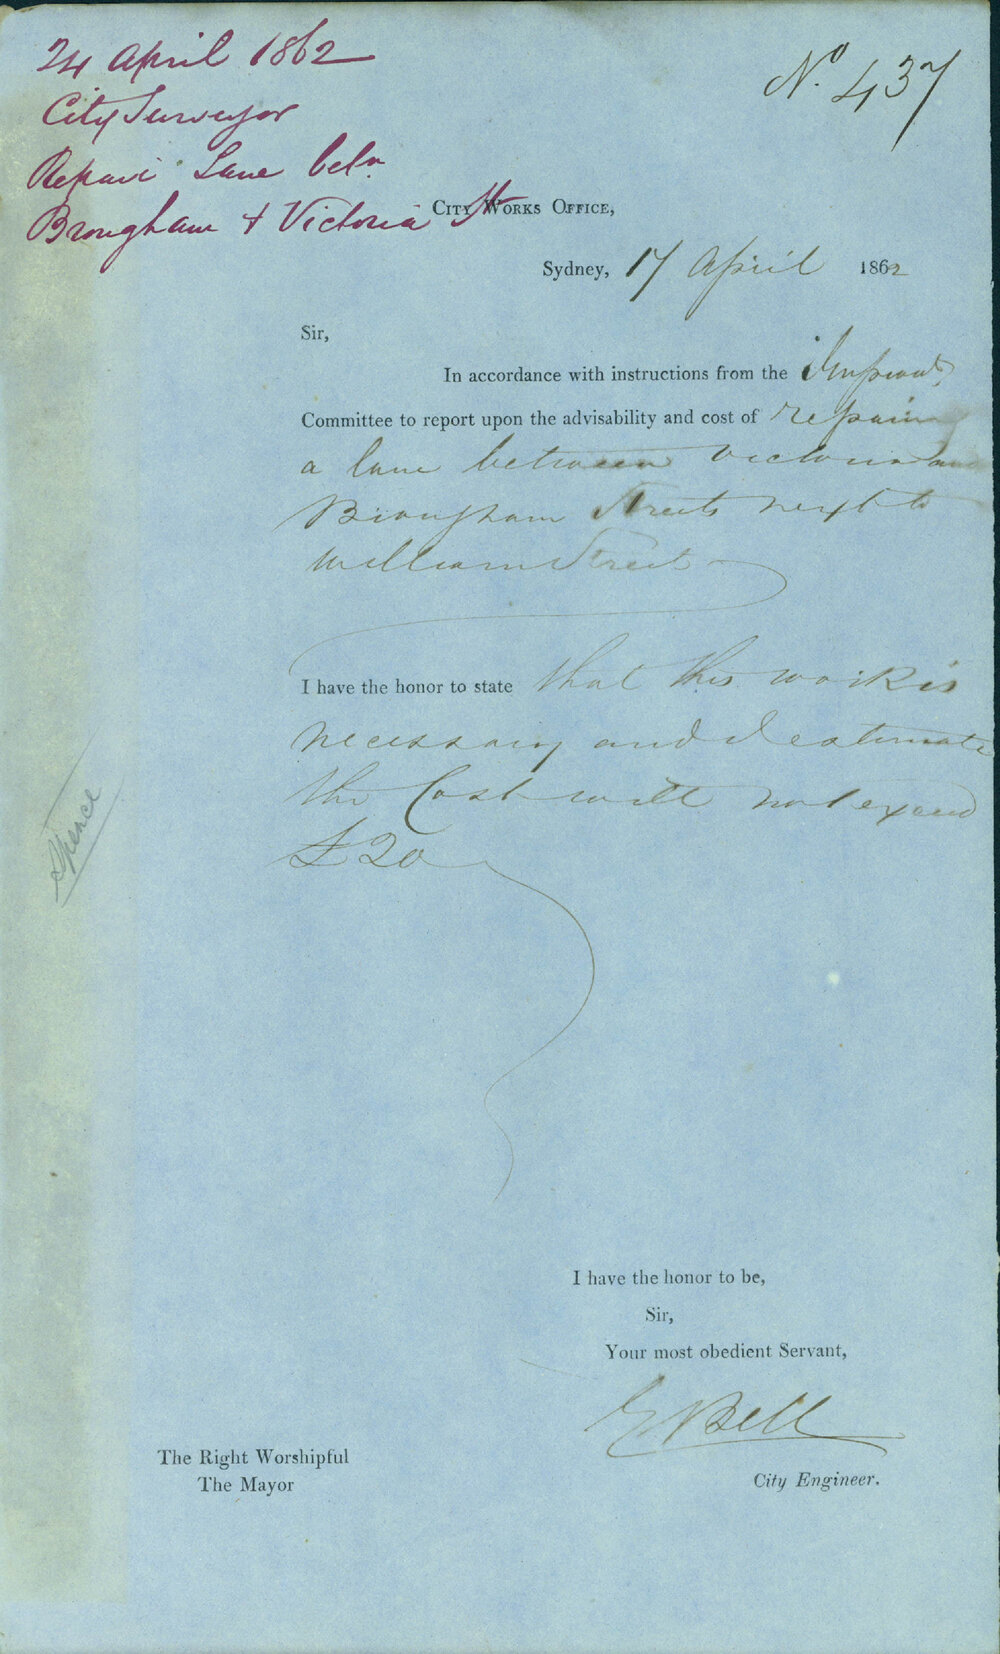 24 April 1862
City Surveyor
Repair Lane betn
Brougham & Victoria St
No. 437
City Works Office,
Sydney, 17 April 1862
Sir,
In accordance with instructions from the Improvt.
Committee to report upon the advisability and cost of repairing
a lane between Victoria and
Brougham Streets next to
William Street
I have the honor to state that this work is
necessary and I estimate
the Cost will not exceed
£20
Spence
I have the honor to be,
Sir,
Your most obedient Servant,
E Bell
City Engineer.
The Right Worshipful
The Mayor